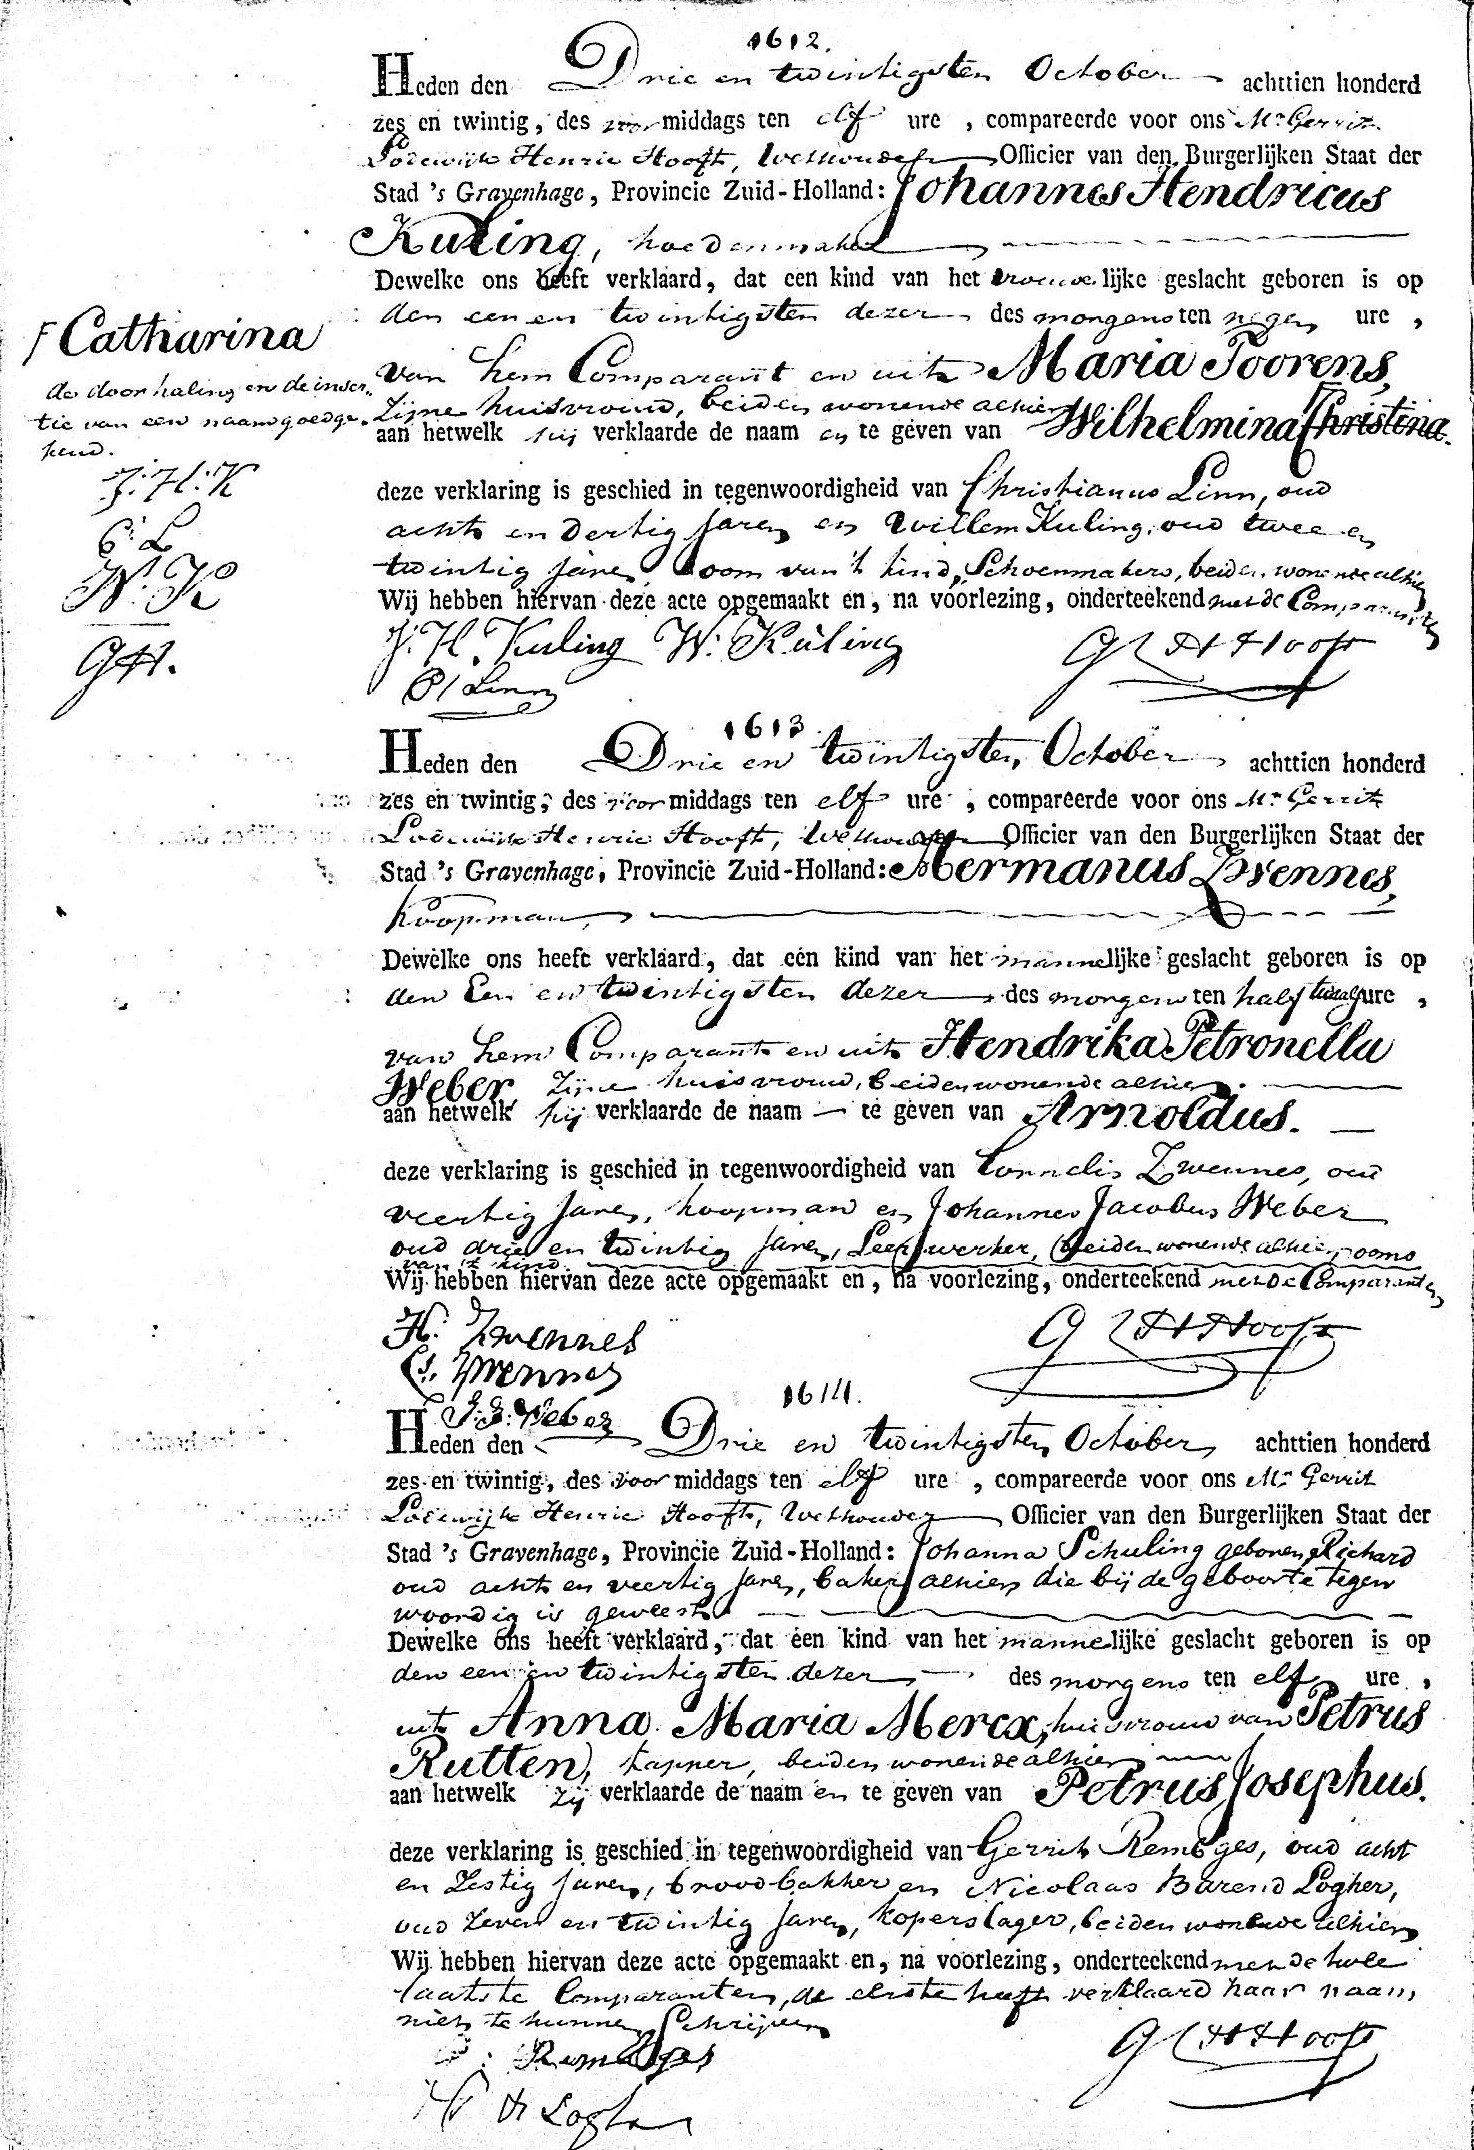 1612.
Heden den Drie en twintigsten October achttien honderd
zes en twintig, des voor middags ten elf ure , compareerde voor ons Mr Gerrit
Lodewijk Henric Hooft, Wethouder Officier van den Burgerlijken Staat der
Stad 's Gravenhage, Provincie Zuid-Holland: Johannes Hendricus
Kuling, hoedenmaker
Dewelke ons heeft verklaard, dat een kind van het vrouwelijke geslacht geboren is op
den een en twintigsten dezer des morgens ten negen ure ,
van hem Comparant en uit Maria Toorens,
zijne huisvrouw, beiden wonende alhier
aan hetwelk hij verklaarde de naam en te geven van Wilhelmina Γ Christina.
deze verklaring is geschied in tegenwoordigheid van Christianus Linn, oud
acht en dertig jaren en Willem Kuling, oud twee en
twintig jaren, oom van 't kind, Schoenmakers, beiden wonende alhier
Wij hebben hiervan deze acte opgemaakt en, na voorlezing, onderteekend met de Comparanten
J. H. Kuling W. Kuling G L H Hooft
C Linn
Γ Catharina
de doorhaling en de inser-
tie van een naam goedge-
keurd.
J: H: K
C: L
W. K
GH.
1613.
Heden den Drie en twintigsten October achttien honderd
zes en twintig, des voor middags ten elf ure , compareerde voor ons Mr Gerrit
Lodewijk Henric Hooft, Wethouder Officier van den Burgerlijken Staat der
Stad 's Gravenhage, Provincie Zuid-Holland: Hermanus Zwennes,
koopman,
Dewelke ons heeft verklaard, dat een kind van het mannelijke geslacht geboren is op
den Een en twintigsten dezer des morgens ten half twaalf ure ,
van hem Comparant en uit Hendrika Petronella
Weber zijne huisvrouw, beiden wonende alhier.
aan hetwelk hij verklaarde de naam — te geven van Arnoldus. —
deze verklaring is geschied in tegenwoordigheid van Cornelis Zwennes, oud
veertig jaren, koopman en Johannes Jacobus Weber
oud drie en twintig jaren, Leerwerker, beiden wonende alhier, ooms
van 't kind
Wij hebben hiervan deze acte opgemaakt en, na voorlezing, onderteekend met de Comparanten
H: Zwennes G L H Hooft
C. Zwennes
J: J: Weber
1614.
Heden den Drie en twintigsten October achttien honderd
zes en twintig, des voor middags ten elf ure , compareerde voor ons Mr Gerrit
Lodewijk Henric Hooft, Wethouder Officier van den Burgerlijken Staat der
Stad 's Gravenhage, Provincie Zuid-Holland: Johanna Schuling geboren Richard
oud acht en veertig jaren, baker alhier die bij de geboorte tegen
woordig is geweest
Dewelke ons heeft verklaard, dat een kind van het mannelijke geslacht geboren is op
den een en twintigsten dezer des morgens ten elf ure ,
uit Anna Maria Mercx, huisvrouw van Petrus
Rutten, tapper, beiden wonende alhier
aan hetwelk zij verklaarde de naam en te geven van Petrus Josephus.
deze verklaring is geschied in tegenwoordigheid van Gerrit Remeges, oud acht
en Zestig jaren, broodbakker en Nicolaas Barend Logher,
oud zeven en twintig jaren, koperslager, beiden wonende alhier
Wij hebben hiervan deze acte opgemaakt en, na voorlezing, onderteekend met de twee
laatste Comparanten, de eerste heeft verklaard haar naam
niet te kunnen Schrijven
G L H Hooft